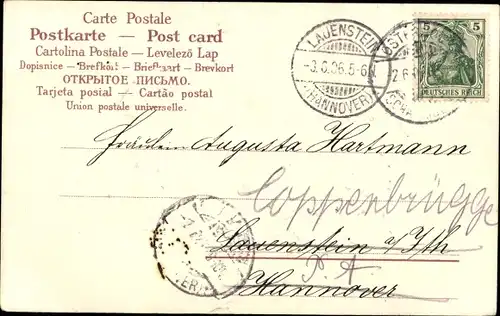 Carte Postale
Postkarte — Post card
Cartolina Postale — Levelező Lap
Dopisnice — Brefkort — Briefkaart — Brevkort
ОТКРЫТОЕ ПИСЬМО.
Tarjeta postal — Cartão postal
Union postale universelle.
LAUENSTEIN
-3.6.06.5-6
(HANNOVER)
5 5
DEUTSCHES REICH
Fräulein Augusta Hartmann
Coppenbrügge
Lauenstein a/Ith
P. A.
Hannover